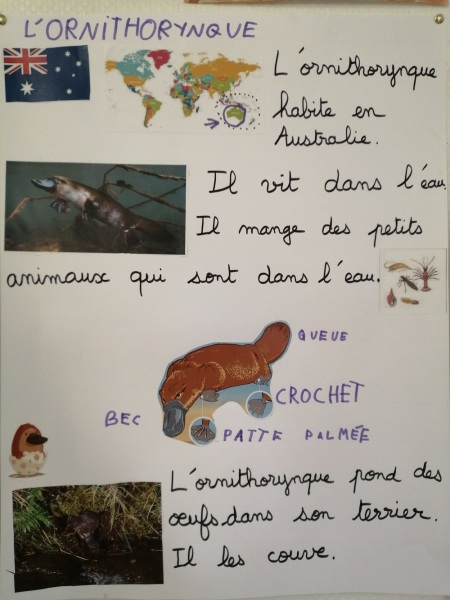 L'ORNITHORYNQUE
L'ornithorynque
habite en
Australie.
Il vit dans l'éau.
Il mange des petits
animaux qui sont dans l'éau.
QUEUE
CROCHET
BEC
PATTE PALMÉE
L'ornithorynque pond des
oeufs dans son terrier.
Il les couve.